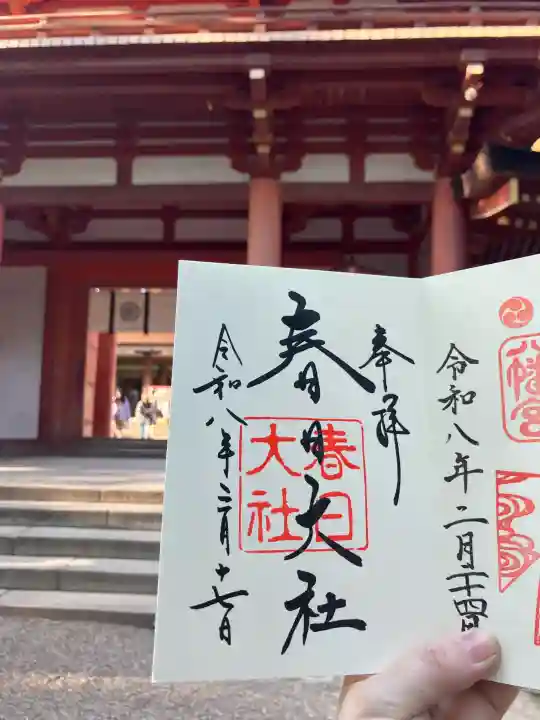 八幡宮
令和八年二月二十四日
奉拝
春日大社
春日
大社
令和八年三月十七日